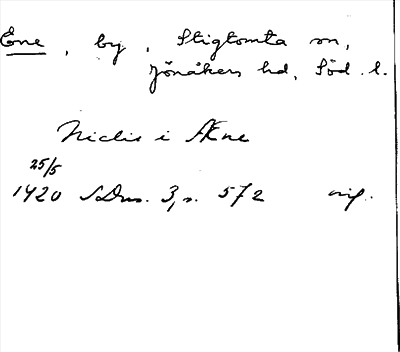 Ene, by, Stigtomta sn,
Jönåkers hd, Söd. l.
Niclis i Æne
25/5
1420 SDns. 3, s. 572 orig.